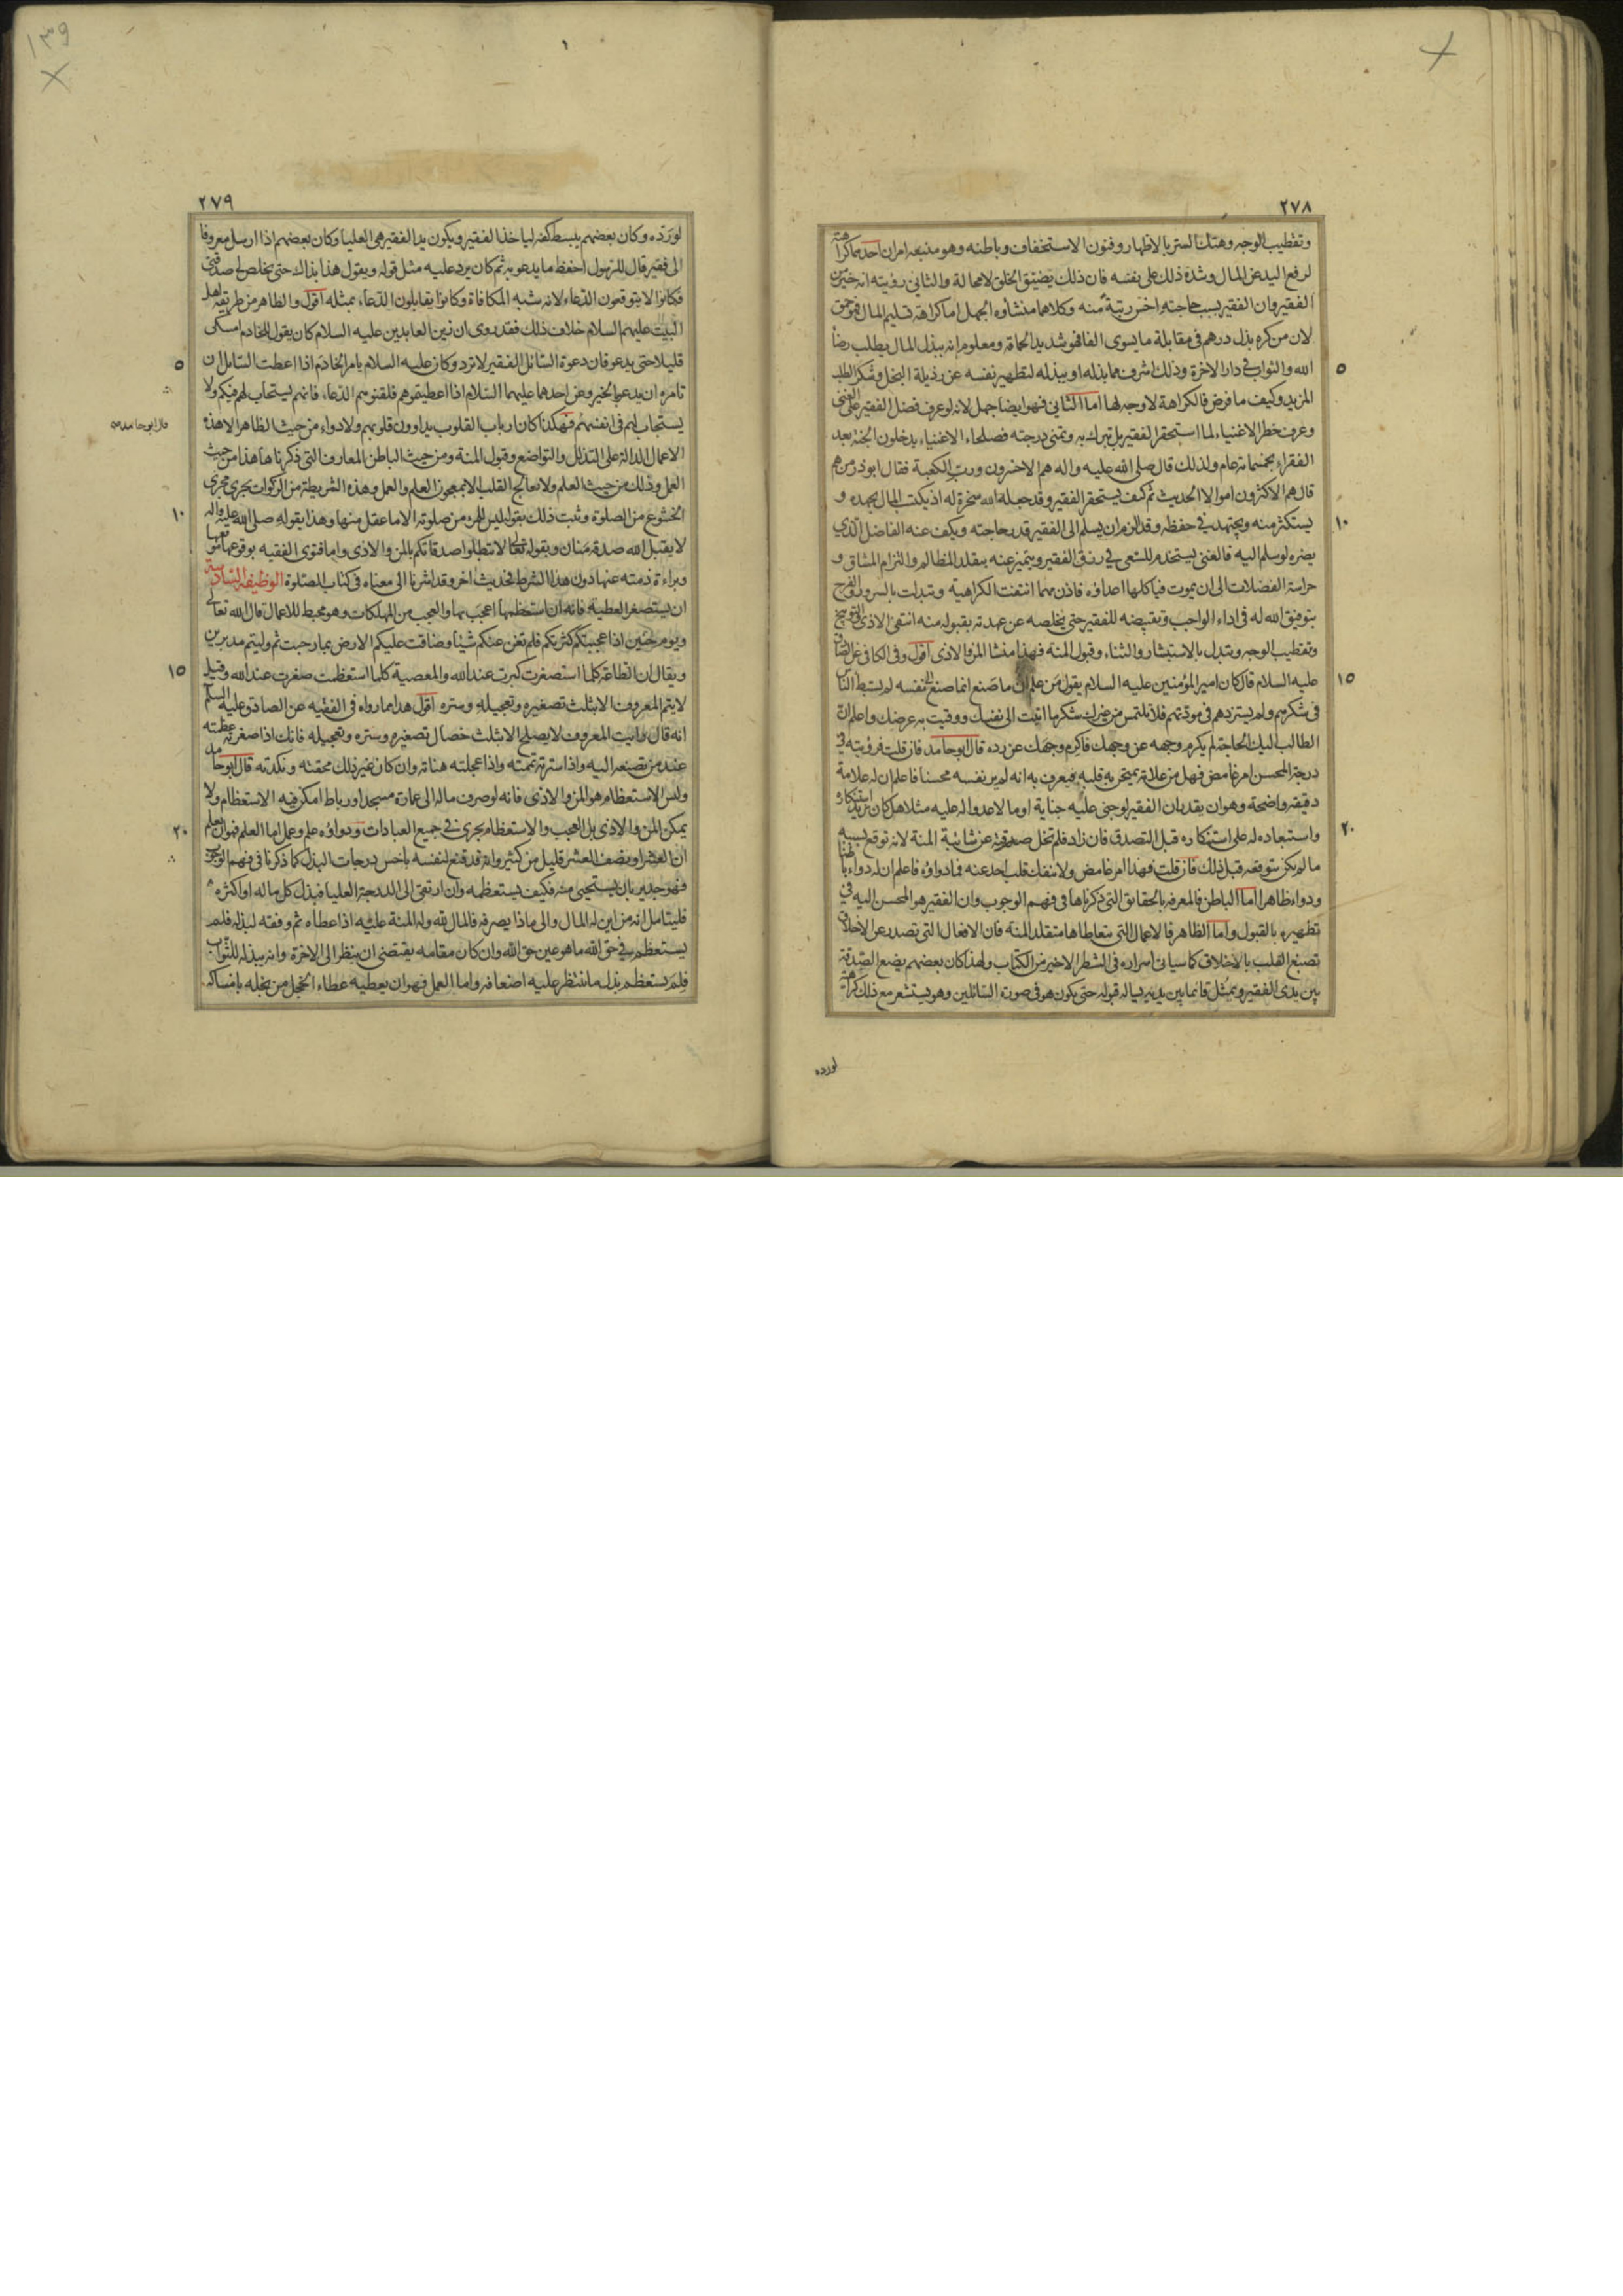 ٢٧٨
وتقطيب الوجه وهتك الستر بالاظهار وفنون الاستخفاف وباطنه وهو منبعه امران احدهما كراهته
لرفع اليد عن المال وشدة ذلك على نفسه فان ذلك يضيق الخلق لا محالة والثاني رؤيته انه خير من
الفقير وان الفقير بسبب حاجته اخس رتبة منه وكلاهما منشأوه الجهل اما كراهة تسليم المال فهو حمق
لان من كره بذل درهم في مقابلة ما يسوى الفا فهو شديد الحماقة ومعلوم انه يبذل المال يطلب رضا
الله والثواب في دار الاخرة وذلك اشرف مما بذله او يبذله لتطهير نفسه عن رذيلة البخل وشكر الطلب
المزيد وكيف ما فرض فالكراهة لا وجه لها اما الثاني فهو ايضا جهل لانه لو عرف فضل الفقير على الغنى
وعرف خطر الاغنياء لما استحقر الفقير بل تبرك به وتمنى درجته فصلحاء الاغنياء يدخلون الجنة بعد
الفقراء بخمسمائة عام ولذلك قال صلى الله عليه واله هم الاخسرون ورب الكعبة فقال ابوذر من هم
قال هم الاكثرون اموالا الحديث ثم كيف يستحقر الفقير وقد جعله الله سخرة له اذ يكتسب المال بجهده و
يستكثر منه ويجتهد في حفظه وقد الزم ان يسلم الى الفقير قدر حاجته ويكف عنه الفاضل الذي
يضره لو سلم اليه فالغنى يستخدم للسعى في رزق الفقير ويتميز عنه بتقلد المظالم والتزام المشاق و
حراسة الفضلات الى ان يموت فياكلها اعداؤه فاذن مهما انتفت الكراهية وتبدلت بالسرور والفرح
بتوفيق الله له في اداء الواجب وتقبيضه للفقير حتى يخلصه عن عهدته بقبوله منه انتفى الاذى والتوبيخ
وتقطيب الوجه وتبدل بالاستبشار والثناء وقبول المنة فهذا منشا المن والاذى اقول وفي الكافي عن الصادق
عليه السلام قال كان امير المؤمنين عليه السلام يقول من علم ان ما صنع انما صنع الى نفسه لم يستبط الناس
في شكرهم ولم يستزدهم في مودتهم فلا تلتمس من غيرك شكر ما اتيت الى نفسك ووقيت به عرضك واعلم ان
الطالب اليك الحاجة لم يكرم وجهه عن وجهك فاكرم وجهك عن رده قال ابو حامد فان قلت فرؤيته في
درجة المحسن امر غامض فهل من علامة يمتحن به قلبه فيعرف به انه لم ير نفسه محسنا فاعلم ان له علامة
دقيقة واضحة وهو ان يقدر ان الفقير لو جنى عليه جناية او مالا عدوا له عليه مثلا هل كان يزيد استنكاره
واستبعاده له على استنكاره قبل التصدق فان زاد فلم تخل صدقته عن شائبة المنة لانه توقع بسببه
ما لم يكن يتوقعه قبل ذلك فان قلت فهذا امر غامض ولا ينفك قلب احد عنه فما دواؤه فاعلم ان له دواء باطنا
ودواء ظاهرا اما الباطن فالمعرفة بالحقائق التي ذكرناها في فهم الوجوب وان الفقير هو المحسن اليه في
تطهيره بالقبول واما الظاهر فالاعمال التي يتعاطاها متقلد المنة فان الافعال التي تصدر عن الاخلاق
تصبغ القلب بالاخلاق كما سيأتي اسراره في الشطر الاخير من الكتاب ولهذا كان بعضهم يضع الصدقة
بين يدى الفقير ويمثل قائما بين يديه يساله قبوله حتى يكون هو في صورة السائلين وهو يستشعر مع ذلك كراهية
لورده
٥
١٠
١٥
٢٠
٢٧٩
لو رده وكان بعضهم يبسط كفه لياخذ الفقير ويكون يد الفقير هي العليا وكان بعضهم اذا ارسل معروفا
الى فقير قال للرسول احفظ ما يدعو به ثم كان يرد عليه مثل قوله ويقول هذا بذاك حتى يخلص لي صدقتي
فكانوا لا يتوقعون الدعاء لانه شبه المكافاة وكانوا يقابلون الدعاء بمثله اقول والظاهر من طريقة اهل
البيت عليهم السلام خلاف ذلك فقد روى ان زين العابدين عليه السلام كان يقول للخادم امسكى
قليلا حتى يدعو فان دعوة السائل الفقير لا ترد وكان عليه السلام يامر الخادم اذا اعطت السائل ان
تامره ان يدعو بالخير وعن احدهما عليهما السلام اذا اعطيتموهم فلقنوهم الدعاء فانهم يستجاب لهم فيكم ولا
يستجاب لهم في انفسهم فهكذا كان ارباب القلوب يداوون قلوبهم ولا دواء من حيث الظاهر الا هذه
الاعمال الدالة على التذلل والتواضع وقبول المنة ومن حيث الباطن المعارف التي ذكرناها هذا من حيث
العمل وذلك من حيث العلم ولا تعالج القلب الا بمعجون العلم والعمل وهذه الشريطة من الزكوات تجرى مجرى
الخشوع من الصلوة وثبت ذلك بقوله ليس للمرء من صلوته الا ما عقل منها وهذا بقوله صلى الله عليه واله
لا يقبل الله صدقة منان وبقوله تعالى لا تبطلوا صدقاتكم بالمن والاذى واما فتوى الفقيه بوقوعها موقعها
وبراءة ذمته عنها دون هذا الشرط فحديث اخر وقد اشرنا الى معناه في كتاب الصلوة الوظيفة السادسة
ان يستصغر العطية فانه ان استعظمها اعجب بها والعجب من المهلكات وهو محبط للاعمال قال الله تعالى
ويوم حنين اذ اعجبتكم كثرتكم فلم تغن عنكم شيئا وضاقت عليكم الارض بما رحبت ثم وليتم مدبرين
ويقال ان الطاعة كلما استصغرت كبرت عند الله والمعصية كلما استعظمت صغرت عند الله وقيل
لا يتم المعروف الا بثلث تصغيره وتعجيله وستره اقول هذا مما رواه في الفقيه عن الصادق عليه السلم
انه قال رايت المعروف لا يصلح الا بثلث خصال تصغيره وستره وتعجيله فانك اذا صغرته عظمته
عند من تصنعه اليه واذا سترته تممته واذا عجلته هناته وان كان غير ذلك محقته ونكدته قال ابو حامد
وليس الاستعظام هو المن والاذى فانه لو صرف ماله الى عمارة مسجد او رباط امكن فيه الاستعظام ولا
يمكن المن والاذى بل العجب والاستعظام يجرى في جميع العبادات ودواؤه علم وعمل اما العلم فهو ان يعلم
ان العشر او نصف العشر قليل من كثير وانه قد قنع لنفسه باخس درجات البذل كما ذكرنا في فهم الوجوب
فهو جدير بان يستحيي منه فكيف يستعظمه وان ارتقى الى الدرجة العليا فبذل كل ماله او اكثره
فليتامل انه من اين له المال والى ماذا يصرفه فالمال لله وله المنة عليه اذ اعطاه ثم وفقه لبذله فلم
يستعظم في حق الله ما هو عين حق الله وان كان مقامه يقتضى ان ينظر الى الاخرة وانه يبذله للثواب
فلم يستعظم بذل ما ينتظر عليه اضعافه واما العمل فهو ان يعطيه عطاء الخجل من بخله بامساكه
٥
١٠
١٥
٢٠
١٣٩